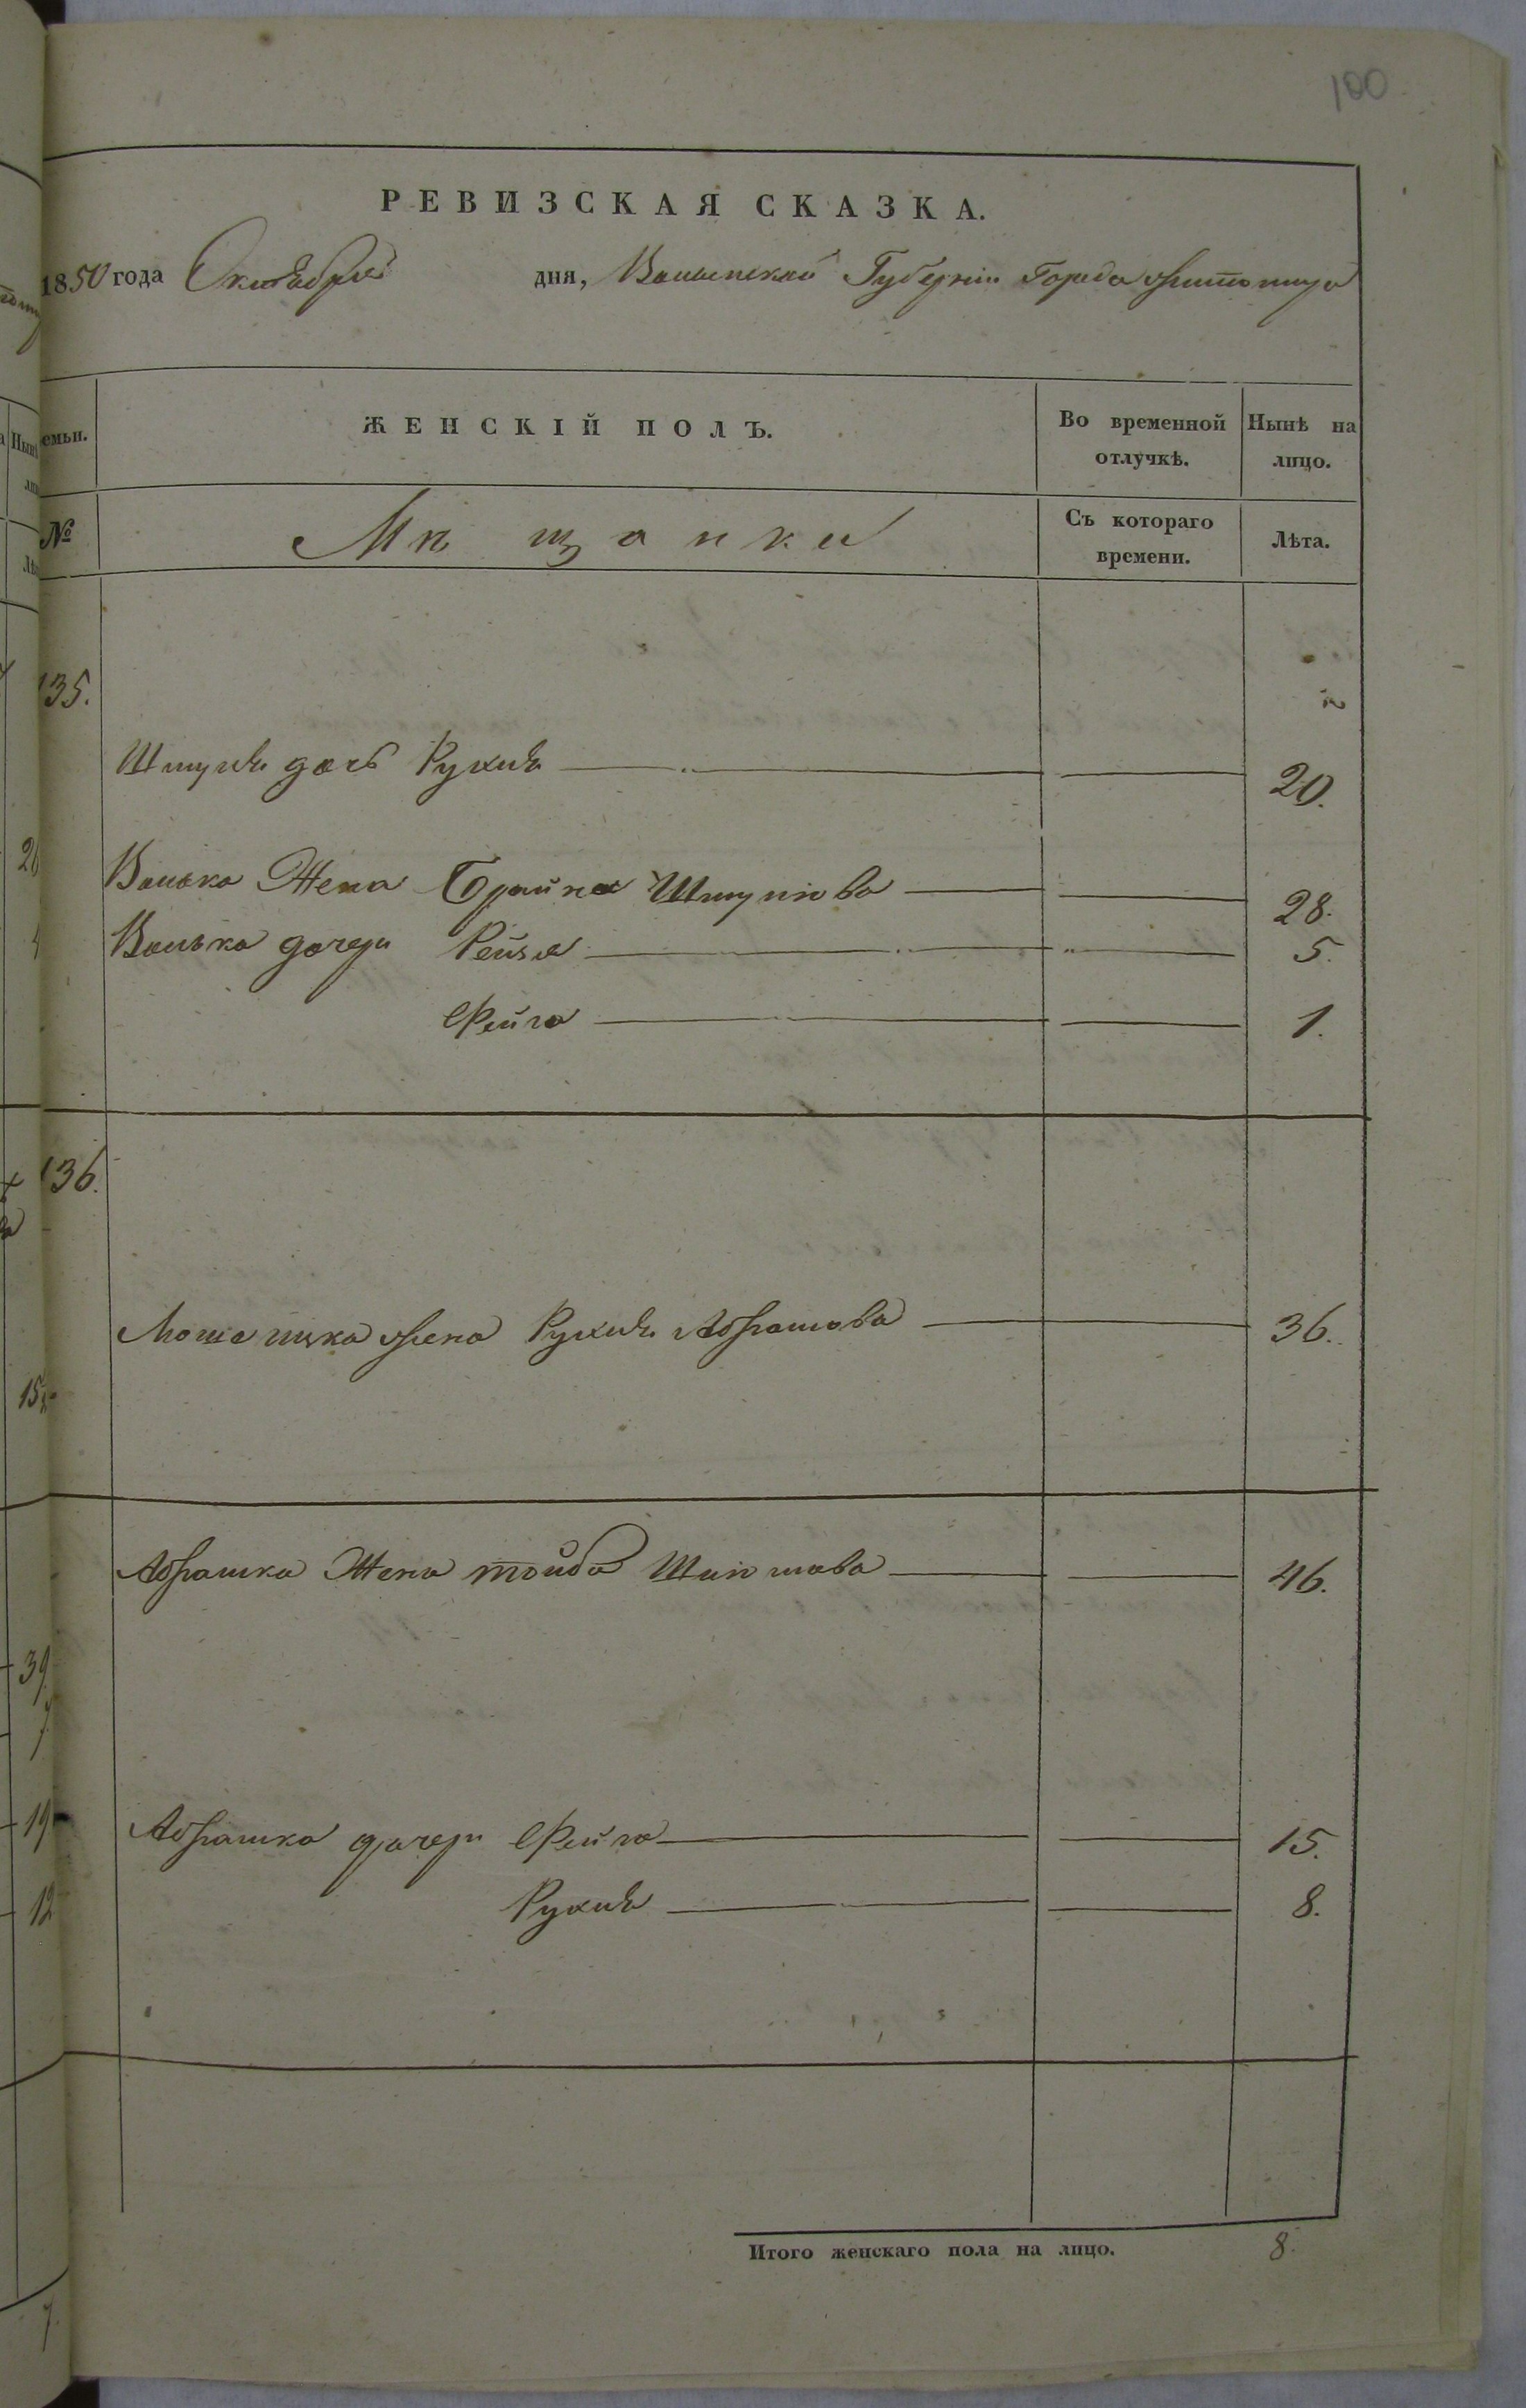 100
РЕВИЗСКАЯ СКАЗКА.
1850 года Октября дня, Волынской Губернiи Города Житомира
емьи. ЖЕНСКIЙ ПОЛЪ. Во временной отлучкѣ. Нынѣ на лицо.
№ Мѣщанки Съ котораго времени. Лѣта.
135.
Шмуля дочь Рухля 20.
Волька Жена Брайна Шмулiова 28.
Волька дочери Рейзя 5.
Фейга 1.
136.
Мошка жена Рухля Абрамова 36.
Абрашка Жена Тойба 46.
Абрашка дочери Фейга 15.
Рухля 8.
Итого женскаго пола на лицо. 8.